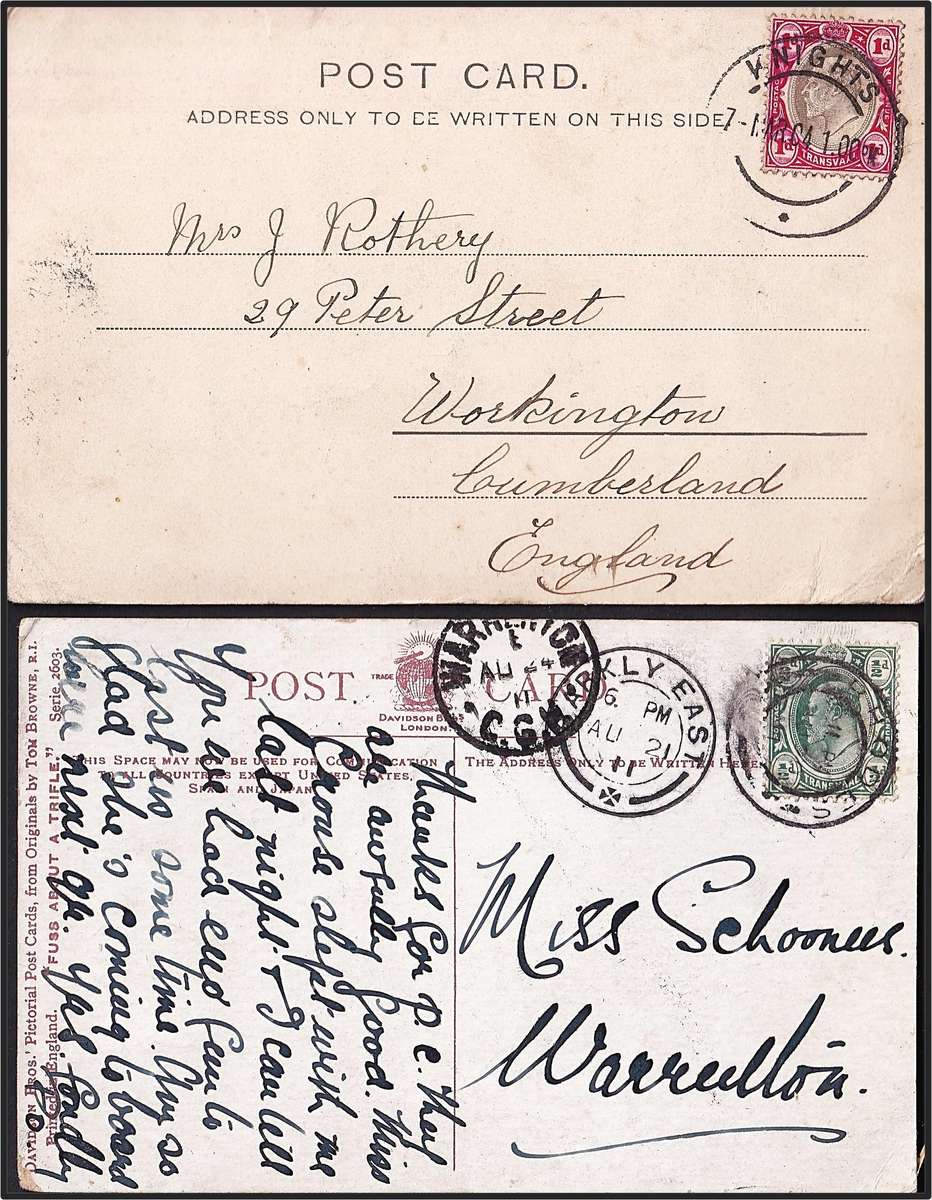 POST CARD.
ADDRESS ONLY TO BE WRITTEN ON THIS SIDE.
1d 1d
POSTAGE
1d 1d
TRANSVAAL
KNIGHTS
7 - 04 1.00
Mrs J Rothery
29 Peter Street
Workington
Cumberland
England
POST CARD
TRADE
DAVIDSON BROS.
LONDON.
THIS SPACE MAY NOW BE USED FOR COMMUNICATION
TO ALL COUNTRIES EXCEPT UNITED STATES,
SPAIN AND JAPAN.
THE ADDRESS ONLY TO BE WRITTEN HERE.
WARRENTON
AU 24
11
C.G.H
BARKLY EAST
6. PM
AU 21
11
TRANSVAAL
Miss
Warrenton.
Thanks for p.c. They
are awfully good. Miss
Carouse slept with me
last night & I can tell
you we had end fun to
last us some time. You so
glad she's coming to board
next qr. Yrs.
DAVIDSON BROS.' Pictorial Post Cards, from Originals by TOM BROWNE, R.I.
Printed in England. "FUSS ABOUT A TRIFLE." Serie. 2603.